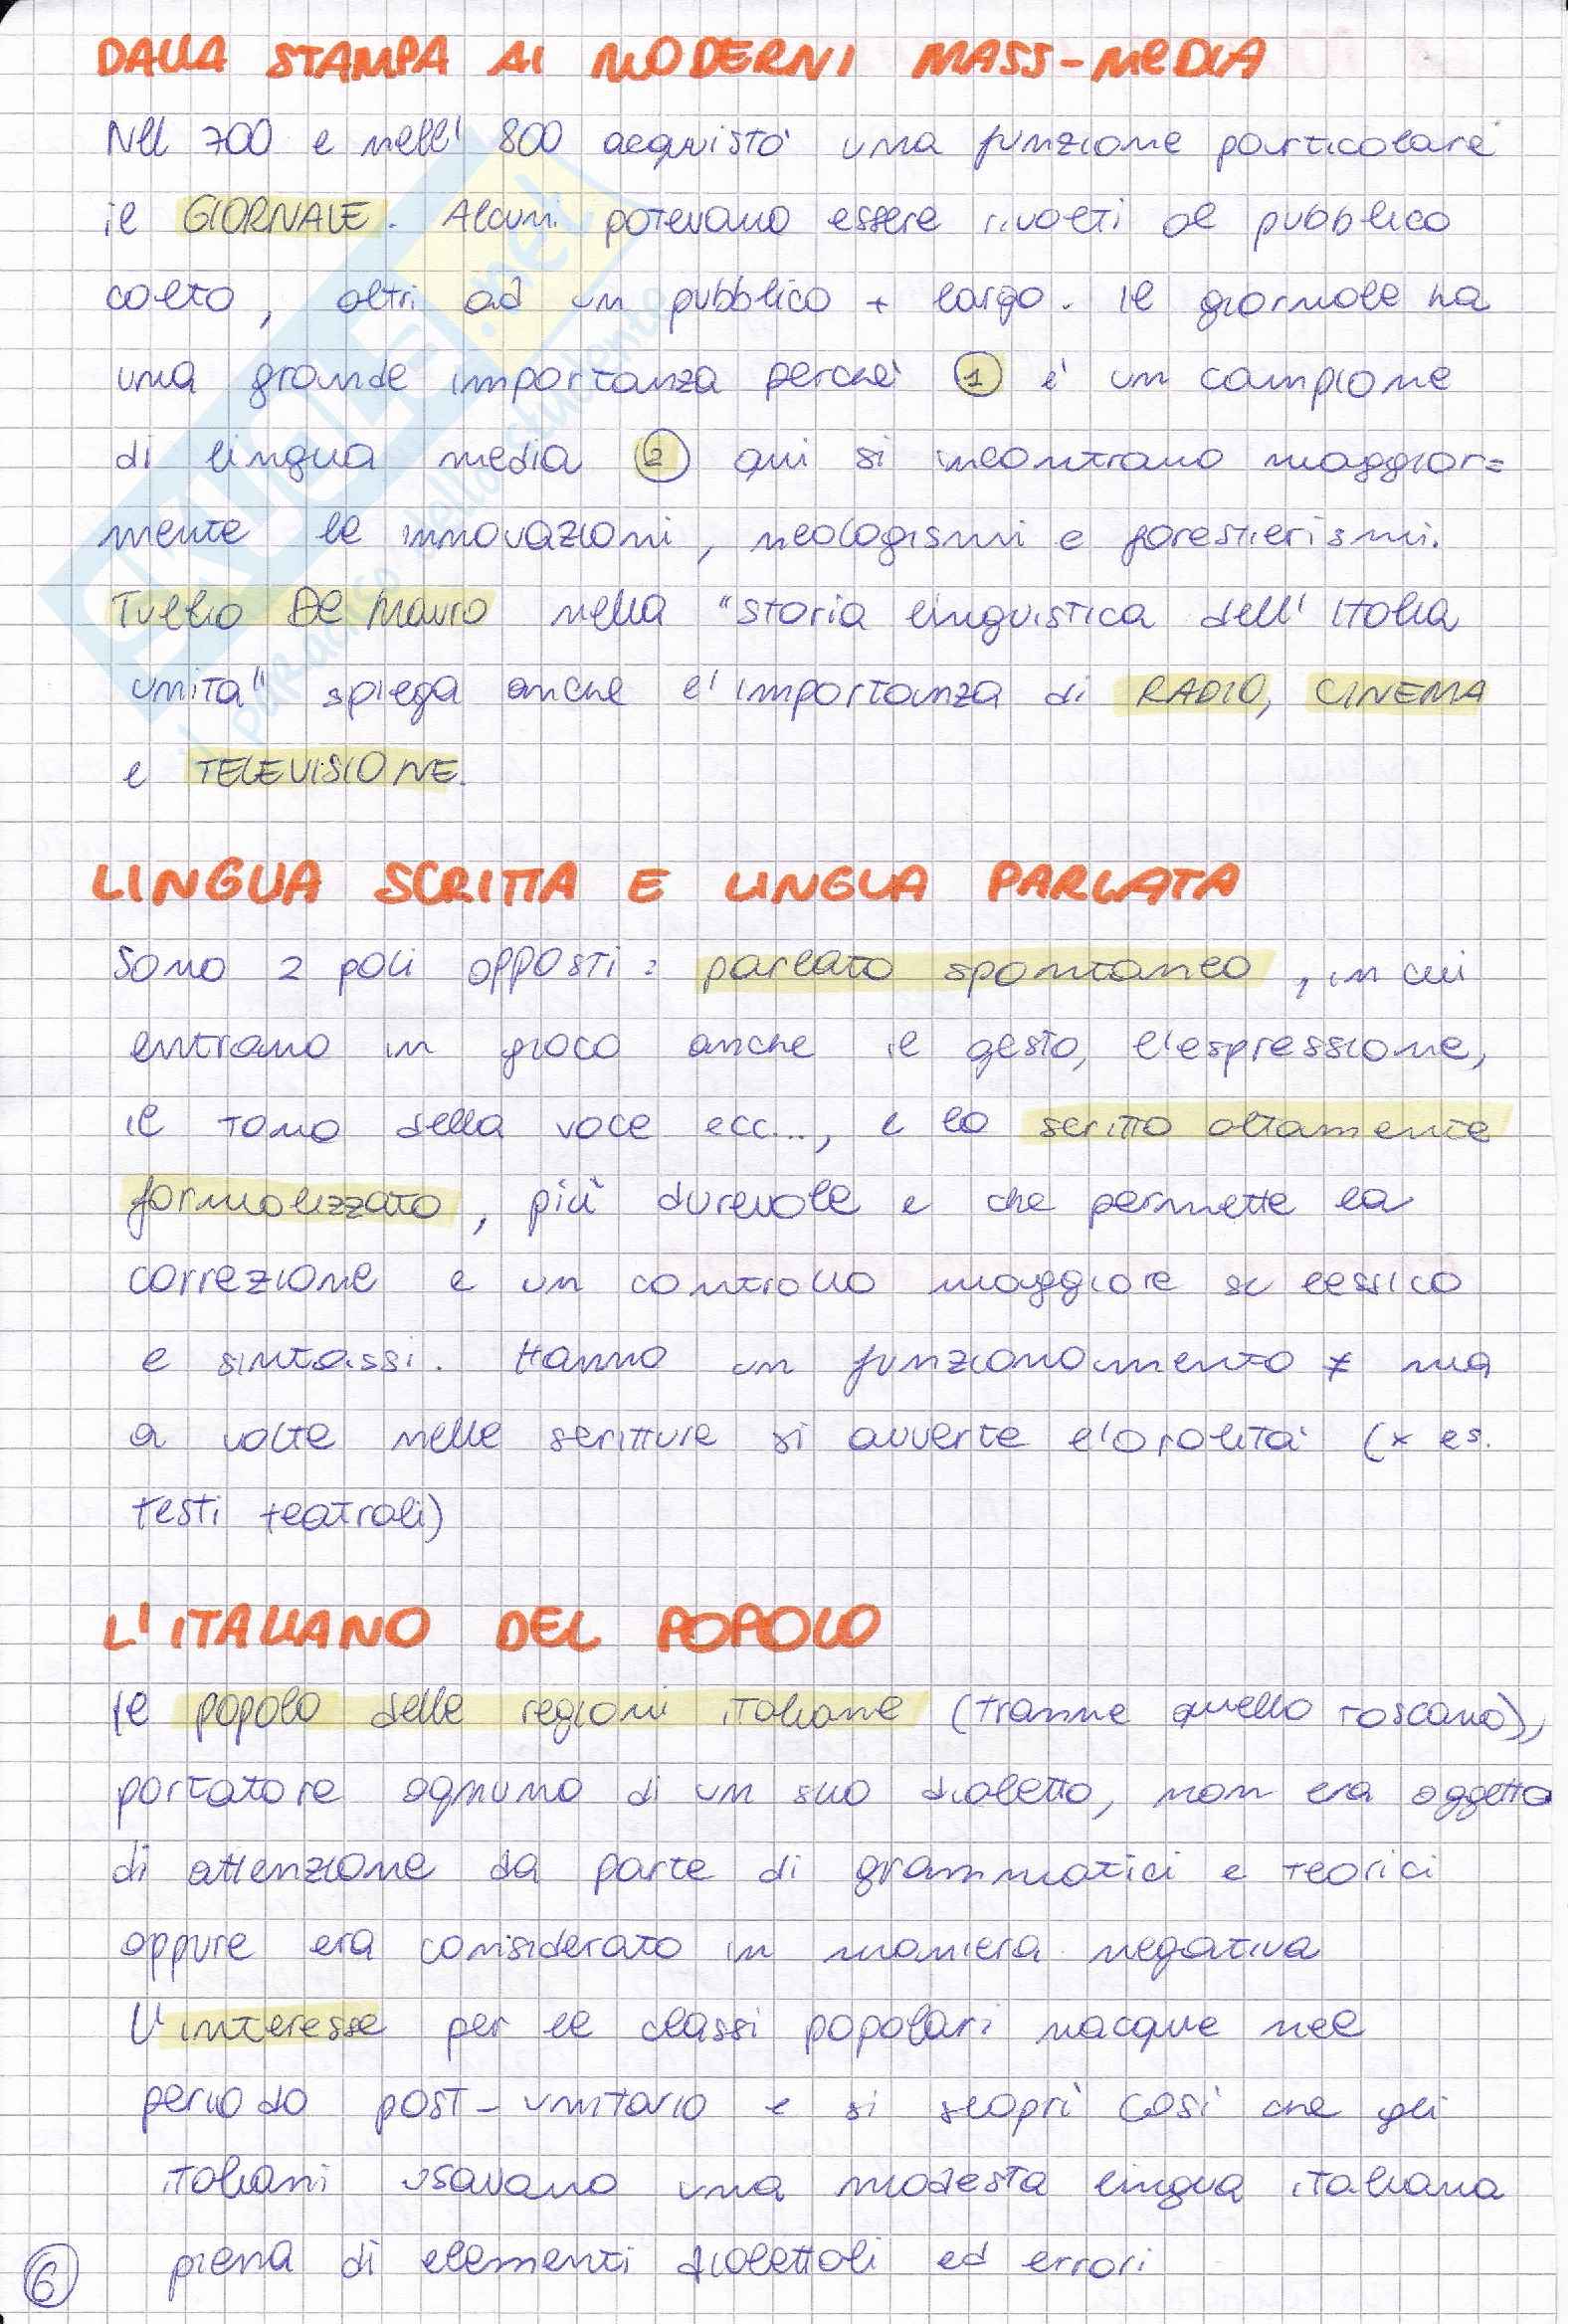 DALLA STAMPA AI MODERNI MASS-MEDIA
Nel 700 e nell' 800 acquistò una funzione particolare
il GIORNALE. Alcuni potevano essere rivolti al pubblico
colto, altri ad un pubblico + largo. Il giornale ha
una grande importanza perchè 1 è un campione
di lingua media 2 qui si incontrano maggior=
mente le innovazioni, neologismi e forestierismi.
Tullio De Mauro nella "Storia linguistica dell'Italia
unita" spiega anche l'importanza di RADIO, CINEMA
e TELEVISIONE.
LINGUA SCRITTA E LINGUA PARLATA
Sono 2 poli opposti: parlato spontaneo, in cui
entrano in gioco anche il gesto, l'espressione,
il tono della voce ecc..., e lo scritto altamente
formalizzato, più durevole e che permette la
correzione e un controllo maggiore su lessico
e sintassi. Hanno un funzionamento ≠ ma
a volte nelle scritture si avverte l'oralità (x es.
testi teatrali)
L'ITALIANO DEL POPOLO
Il popolo delle regioni italiane (tranne quello toscano),
portatore ognuno di un suo dialetto, non era oggetto
di attenzione da parte di grammatici e teorici
oppure era considerato in maniera negativa
L'interesse per le classi popolari nacque nel
periodo post-unitario e si scoprì così che gli
italiani usavano una modesta lingua italiana
piena di elementi dialettali ed errori
6